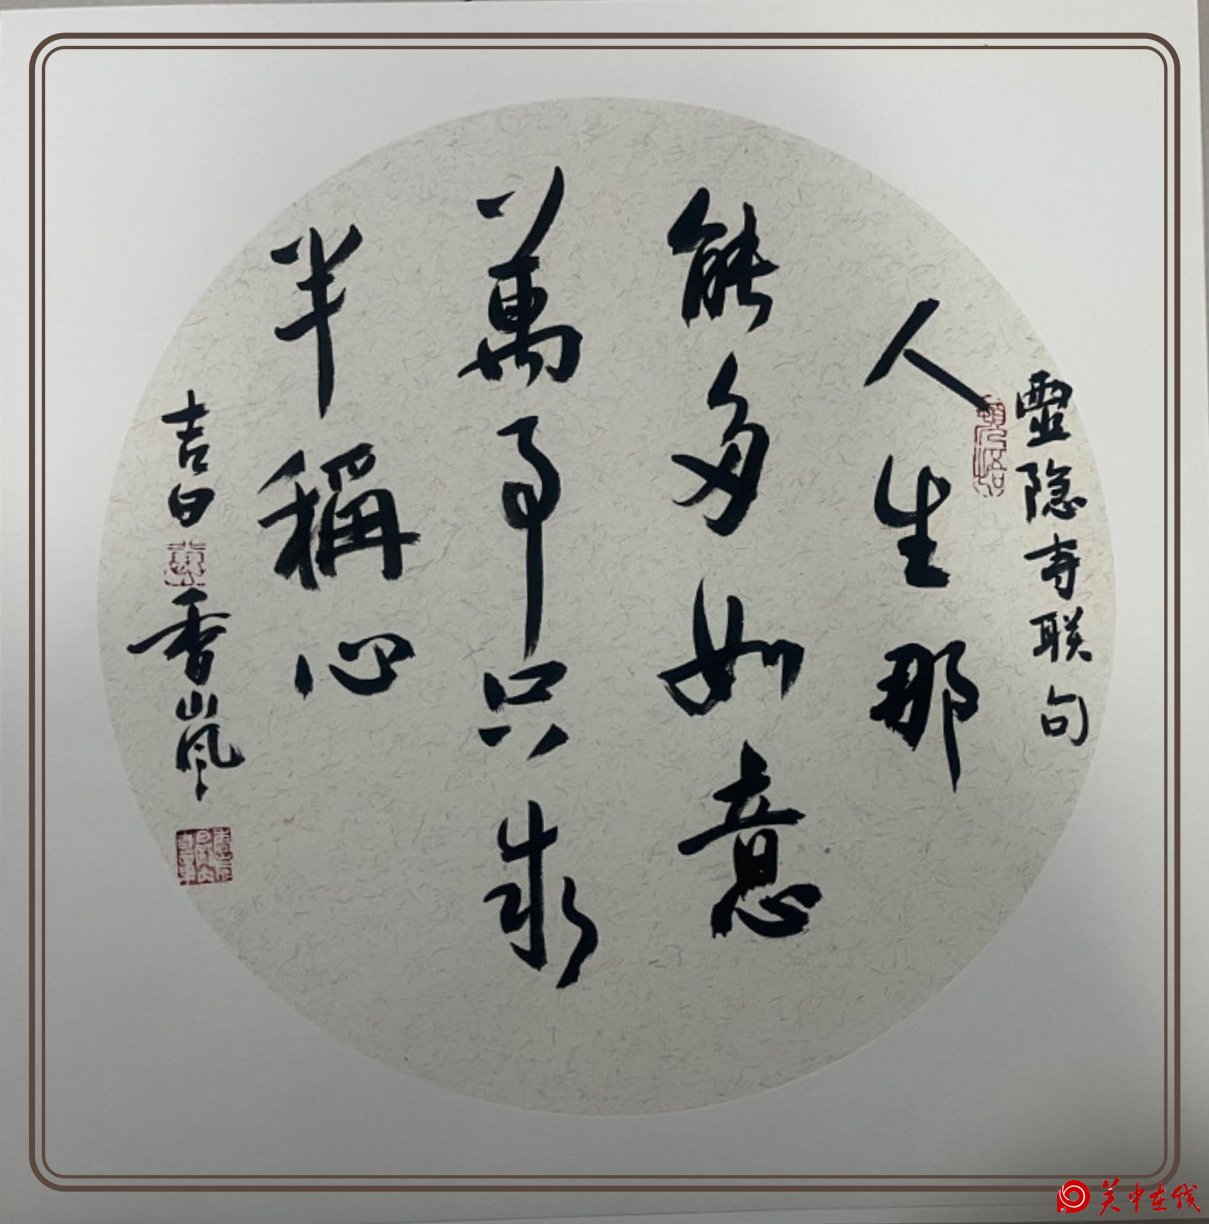 靈隐寺联句
人生那
能多如意
萬事只求
半稱心
吉日
香嵐
关中在线